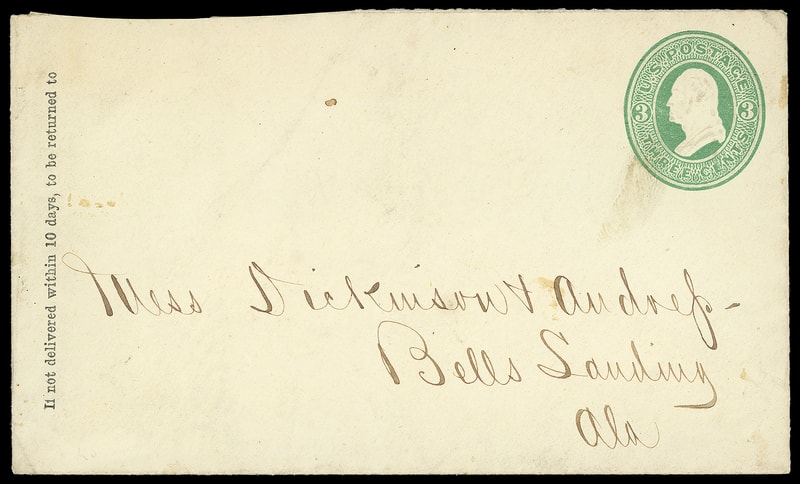 U.S. POSTAGE
3 3
THREE CENTS
If not delivered within 10 days, to be returned to
Mess Dickinson & Andress -
Bells Landing
Ala